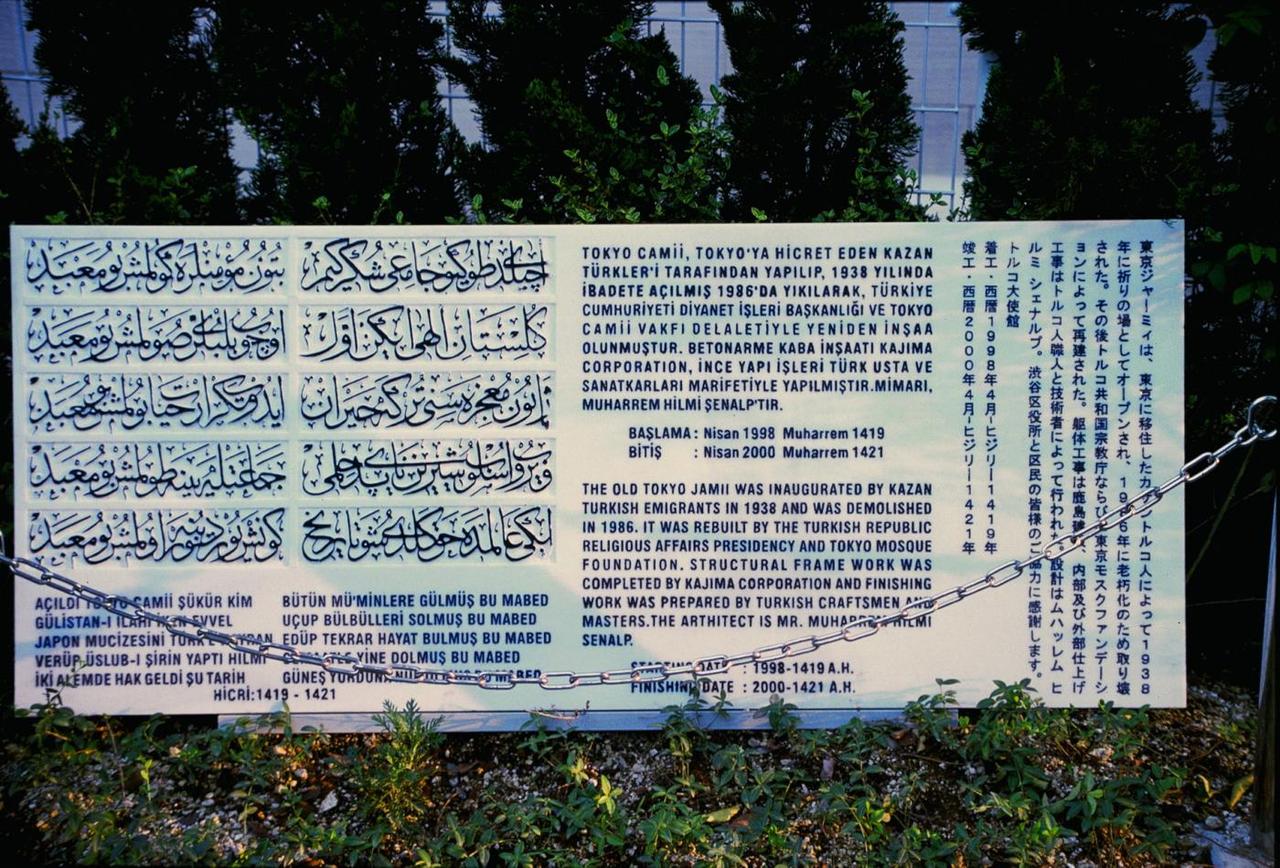 آچیلدی طوکیو جامعی شکر کیم بتون مؤمنلره کولمش بو معبد
کلستان الهی ایکن اول اوچوب بلبللری صولمش بو معبد
ایدوب تکرار حیات بولمش بو معبد
ویروب اسلوب شیرین یاپدی حلمی جماعتله یینه طولمش بو معبد
ایکی عالمده حق کلدی شو تاریخ کونش یوردینه نور اولمش بو معبد
AÇILDI TOKYO CAMİİ ŞÜKÜR KİM BÜTÜN MÜ'MİNLERE GÜLMÜŞ BU MABED
GÜLİSTAN-I İLAHİ İKEN EVVEL UÇUP BÜLBÜLLERİ SOLMUŞ BU MABED
JAPON MUCİZESİNİ EDÜP TEKRAR HAYAT BULMUŞ BU MABED
VERÜP ÜSLUB-I ŞİRİN YAPTI HİLMİ CEMAATLE YİNE DOLMUŞ BU MABED
İKİ ALEMDE HAK GELDİ ŞU TARİH GÜNEŞ YURDUNA NUR OLMUŞ BU MABED
HİCRİ:1419 - 1421
TOKYO CAMİİ, TOKYO'YA HİCRET EDEN KAZAN
TÜRKLER'İ TARAFINDAN YAPILIP, 1938 YILINDA
İBADETE AÇILMIŞ 1986'DA YIKILARAK, TÜRKİYE
CUMHURİYETİ DİYANET İŞLERİ BAŞKANLIĞI VE TOKYO
CAMİİ VAKFI DELALETİYLE YENİDEN İNŞAA
OLUNMUŞTUR. BETONARME KABA İNŞAATI KAJIMA
CORPORATION, İNCE YAPI İŞLERİ TÜRK USTA VE
SANATKARLARI MARİFETİYLE YAPILMIŞTIR.MİMARI,
MUHARREM HİLMİ ŞENALP'TIR.
BAŞLAMA : Nisan 1998 Muharrem 1419
BİTİŞ : Nisan 2000 Muharrem 1421
THE OLD TOKYO JAMII WAS INAUGURATED BY KAZAN
TURKISH EMIGRANTS IN 1938 AND WAS DEMOLISHED
IN 1986. IT WAS REBUILT BY THE TURKISH REPUBLIC
RELIGIOUS AFFAIRS PRESIDENCY AND TOKYO MOSQUE
FOUNDATION. STRUCTURAL FRAME WORK WAS
COMPLETED BY KAJIMA CORPORATION AND FINISHING
WORK WAS PREPARED BY TURKISH CRAFTSMEN AND
MASTERS.THE ARTHITECT IS MR. MUHARREM HILMI
SENALP.
STARTING DATE : 1998-1419 A.H.
FINISHING DATE : 2000-1421 A.H.
東京ジャーミィは、東京に移住したカザントルコ人によって1938
年に祈りの場としてオープンされ、1986年に老朽化のため取り壊
された。その後トルコ共和国宗教庁ならびに東京モスクファンデーシ
ョンによって再建された。躯体工事は鹿島建設、内部及び外部仕上げ
工事はトルコ人職人と技術者によって行われた。設計はムハッレム ヒ
ルミ シェナルプ。渋谷区役所と区民の皆様のご協力に感謝します。
トルコ大使館
着工・西暦1998年4月ーヒジリー1419年
竣工・西暦2000年4月ーヒジリー1421年